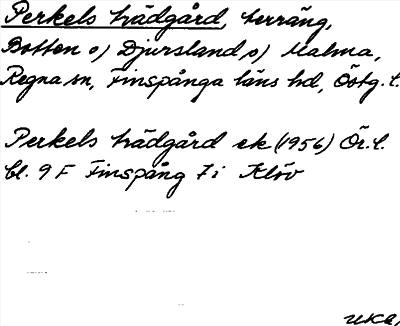 Perkels trädgård, terräng,
Botten o) Djursland o) Malma,
Regna sn, Finspånga läns hd, Östg. l.
Perkels trädgård ek (1956) Ör. l.
bl. 9 F Finspång 7 i Klöv